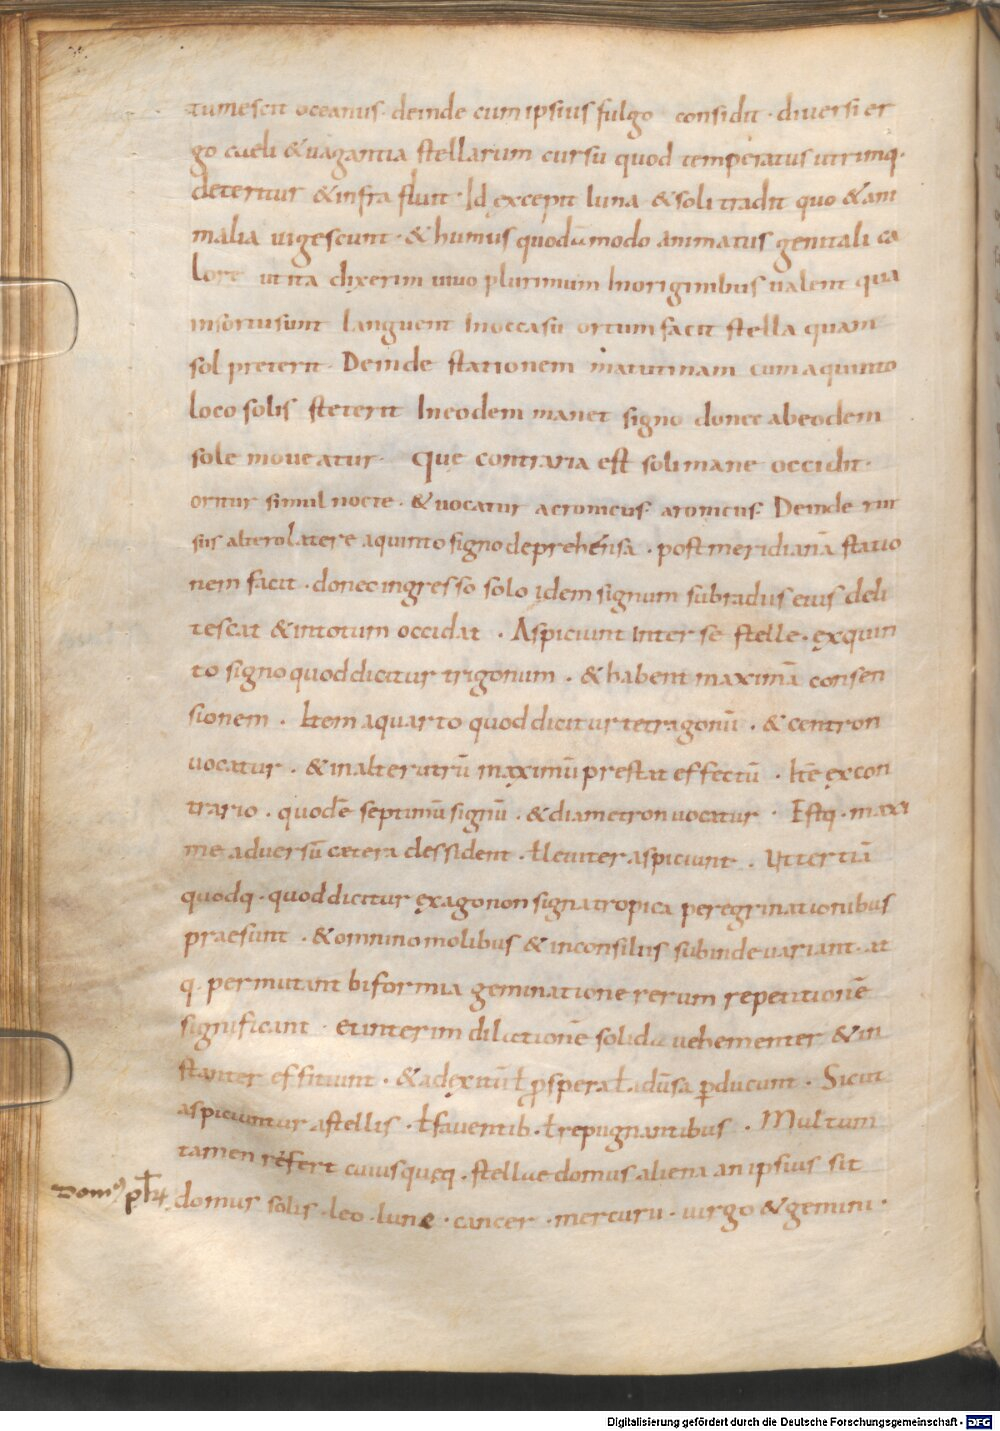 tumescit oceanus. deinde cum ipsius fulgo considit. diversi er
go caeli & vagantia stellarum cursu quod temperatus utrimq.
deteritur & infra fluit. Id excepit luna & soli tradit quo & ani
malia vigescunt. & humus quodamodo animatus genitali ca
lore ut ita dixerim vivo plurimum In originibus valent qua
insortusunt languent In occasu ortum facit stella quam
sol preterit. Deinde stationem matutinam cum a quinto
loco solis steterit In eodem manet signo donec ab eodem
sole moveatur. Que contraria est soli mane occidit.
oritur simul nocte. & vocatur acronicus. aronicus. Deinde rur
sus altero latere a quinto signo deprehensa. postmeridianā statio
nem facit. donec ingresso solo idem signum sub radiis eius deli
tescat & in totum occidat. Aspiciunt inter se stelle. ęx quin
to signo quod dicitur trigonum. & habent maximā consen
sionem. Item a quarto quod dicitur tetragonū. & centron
vocatur. & in alterutrū maximū prestat effectū. Itē ęx con
trario. quod ē septimū signū. & diametron vocatur. Estq. maxi
me adversū cetera dessident. ł leviter aspiciunt. Ut tertiā
quodq. quod dicitur ęxagonon signa tropica peregrinationibus
praesunt. & omnino molibus & inconsiliis subinde variant. at
q. permutant biformia geminatione rerum repetitionē
significant. et interim dilationē solida vehementer & in
stanter effitiunt. & ad ęxitū ł ꝓspera ł adūsa ꝑducunt. Sicut
aspiciuntur a stellis. ł faventib. ł repugnantibus. Multum
tamen refert cuiusquęq. stellae domus aliena an ipsius sit
domus solis. leo. lune. cancer. mercurii. virgo & gemini.
Digitalisierung gefördert durch die Deutsche Forschungsgemeinschaft - DFG